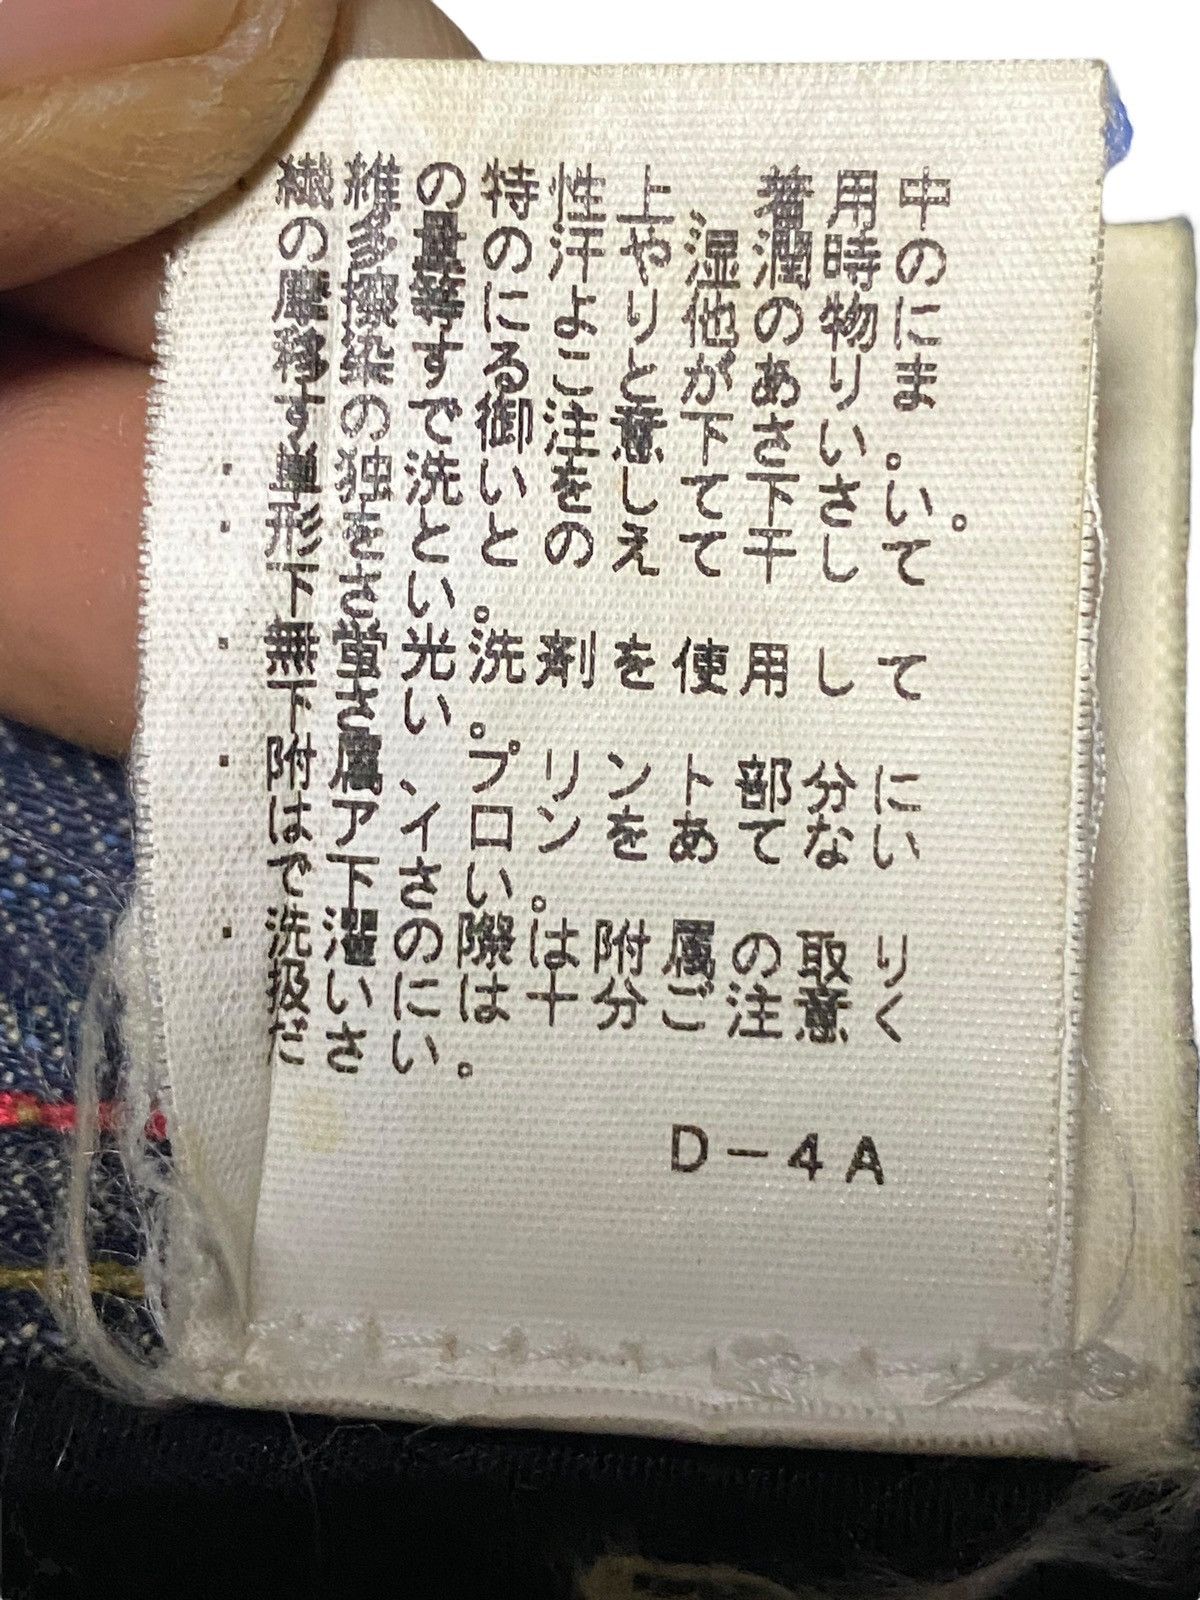 ・繊維の特性上、着用中の
の多量の汗や湿潤時の
摩擦等により他の物に
移染することがありま
すので御注意下さい。
・単独洗いをして下さい。
・形をととのえて干して
下さい。
・無蛍光洗剤を使用して
下さい。
・附属、プリント部分に
はアイロンをあてない
で下さい。
・洗濯の際は附属の取り
扱いには十分ご注意く
ださい。
D-4A